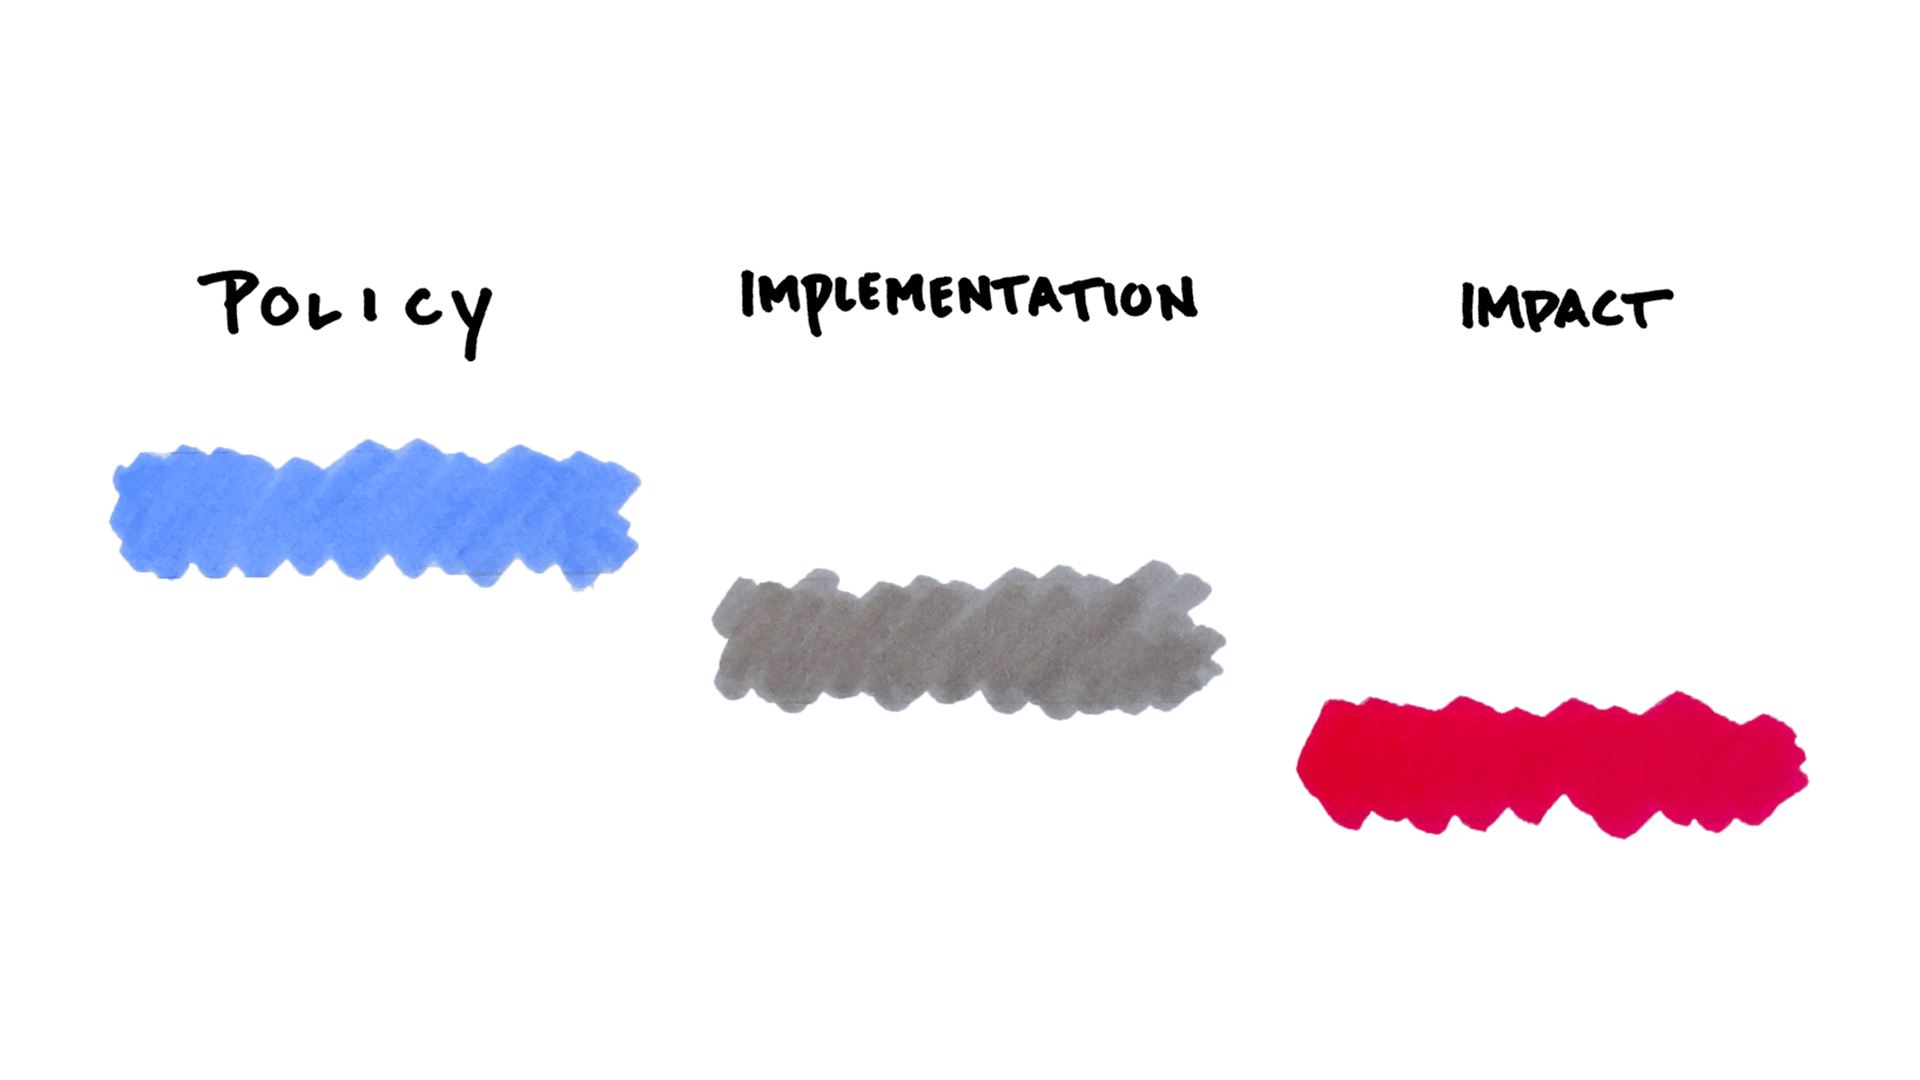 POLICY
IMPLEMENTATION
IMPACT